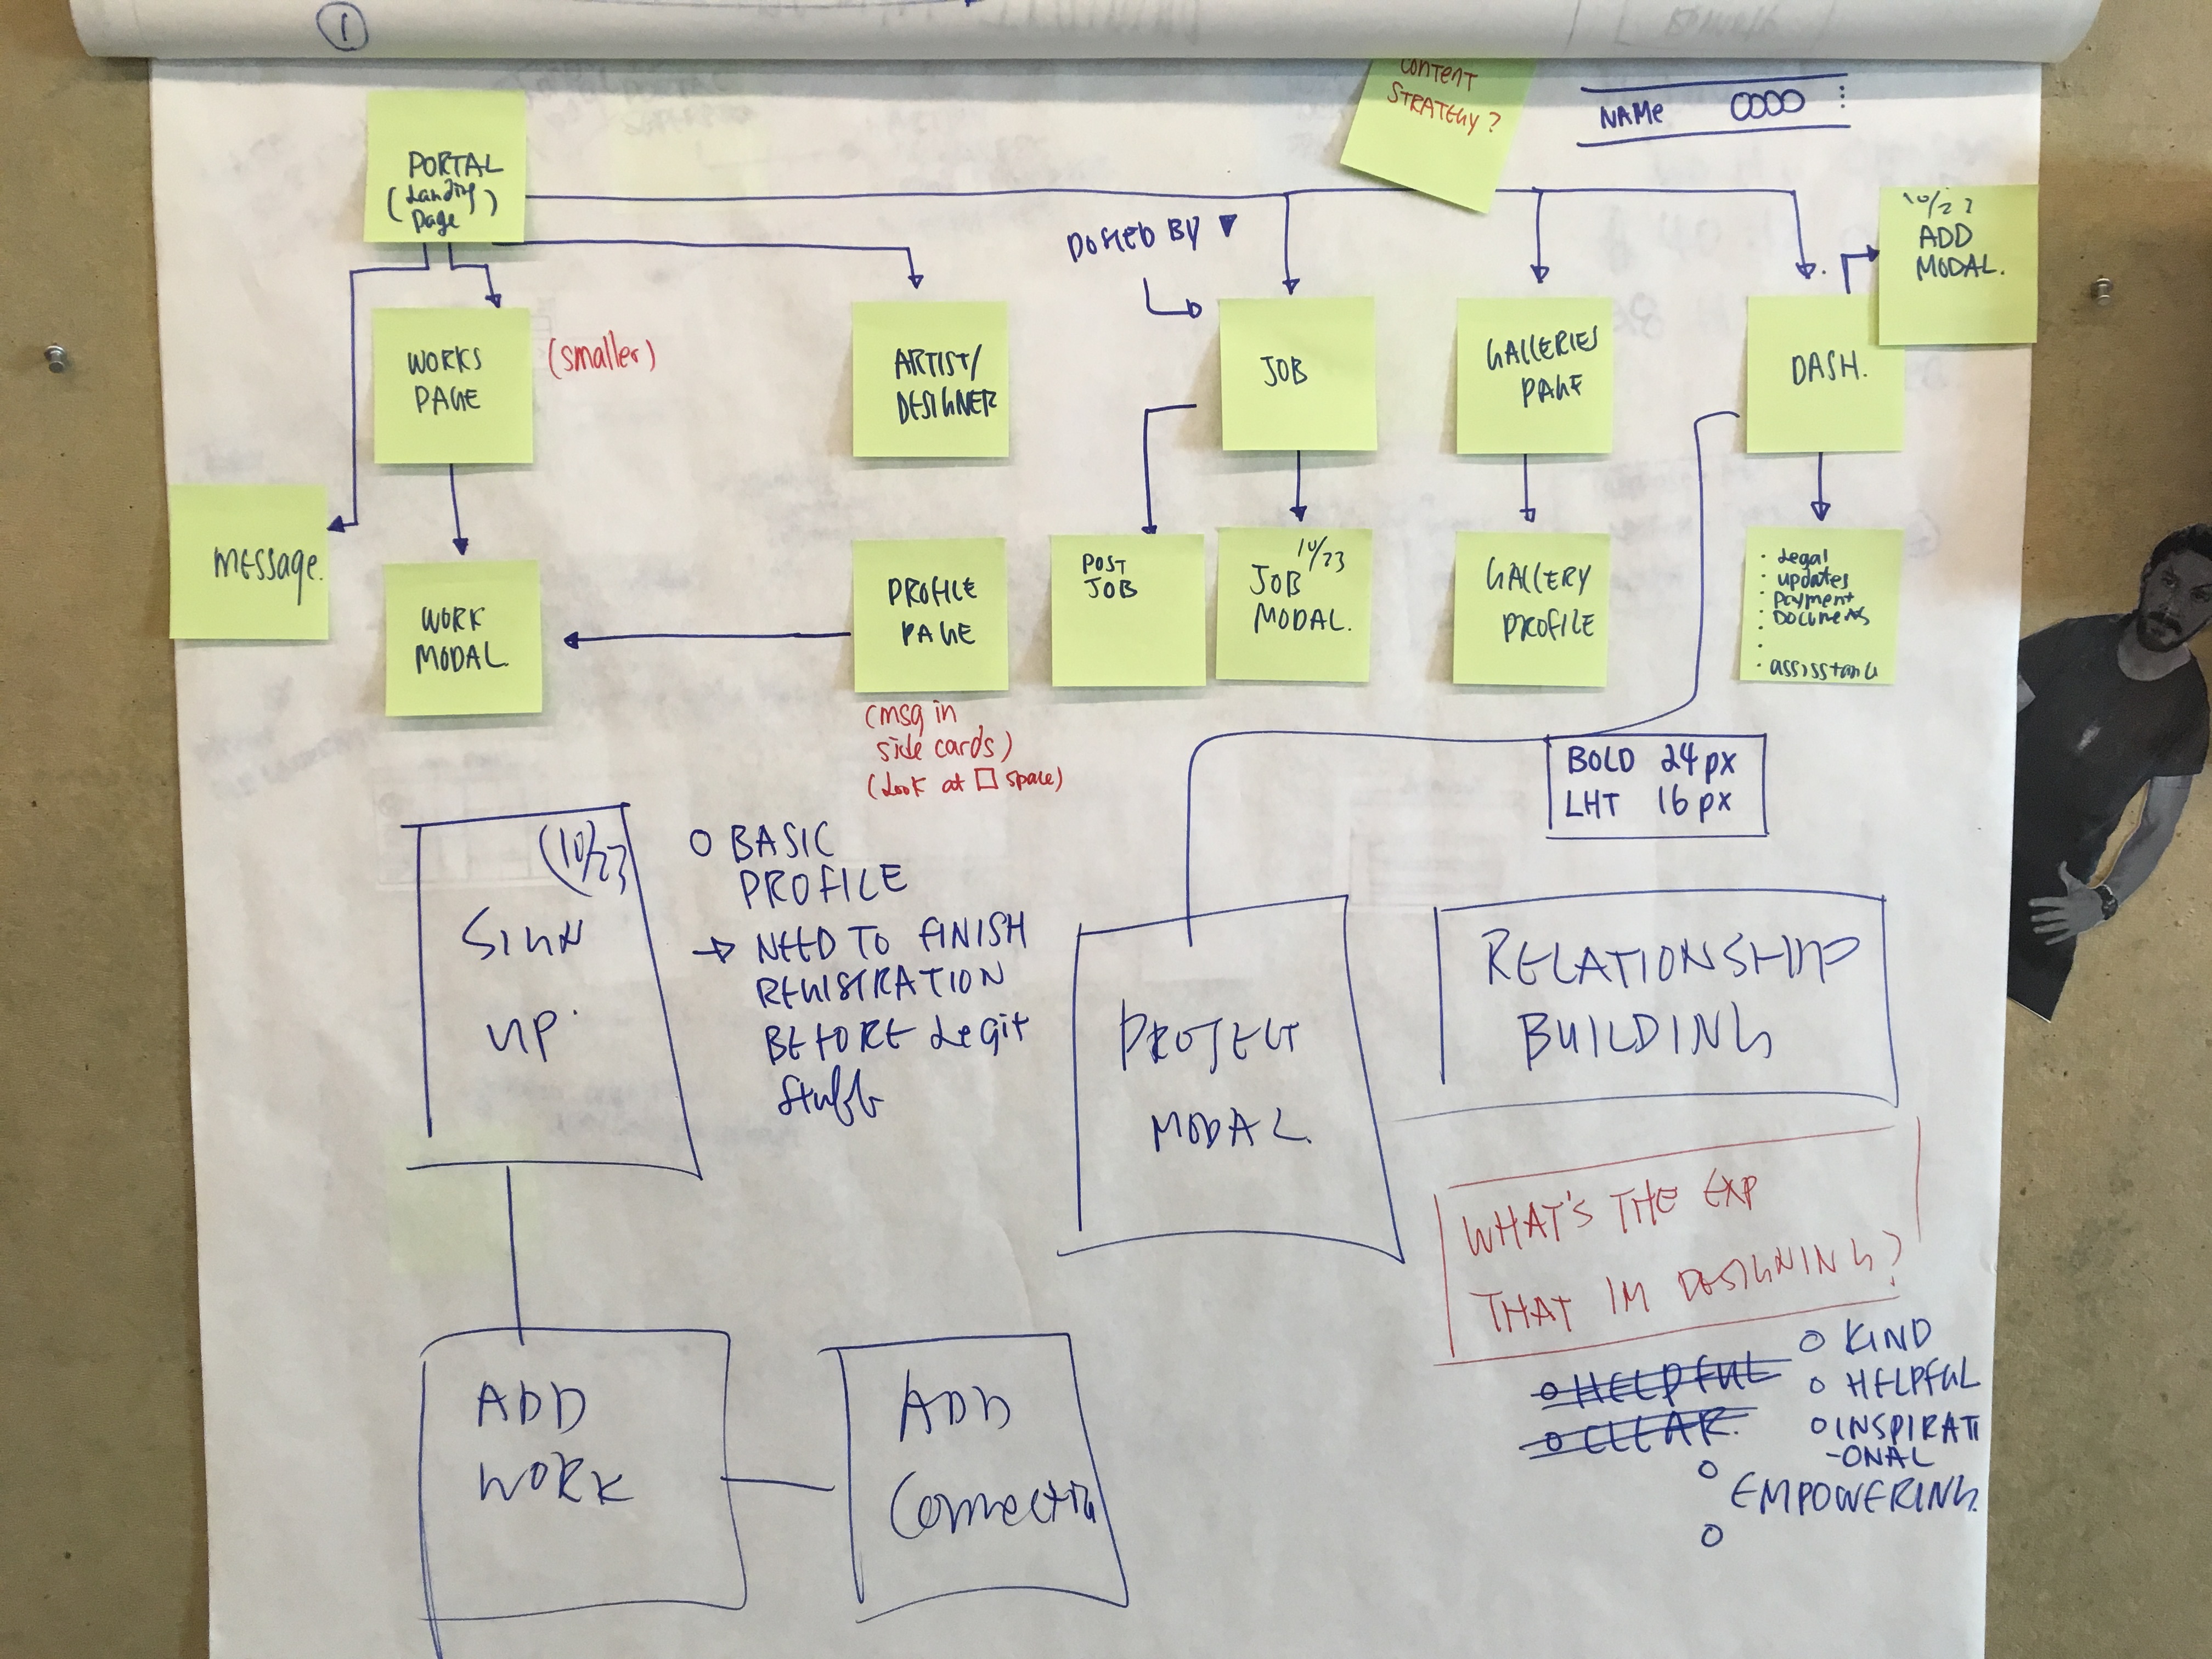 1
CONTENT
STRATEGY?
NAME OOOO
PORTAL
(Landing
Page)
POSTED BY ▼
10/23
ADD
MODAL.
WORKS
PAGE
(smaller)
ARTIST/
DESIGNER
JOB
GALLERIES
PAGE
DASH.
MESSAGE.
WORK
MODAL
PROFILE
PAGE
POST
JOB
10/23
JOB
MODAL.
GALLERY
PROFILE
· Legal
· updates
· payment
· Documents
·
· assistance
(msg in
side cards)
(Look at □ space)
BOLD 24px
LHT 16px
(10/23
SIGN
UP.
O BASIC
PROFILE
→ NEED TO FINISH
REGISTRATION
BEFORE Legit
Stuff
PROJECT
MODAL.
RELATIONSHIP
BUILDING
WHAT'S THE EXP
THAT IM DESIGNING?
O HELPFUL
O CLEAR.
O KIND
O HELPFUL
O INSPIRATI
-ONAL
O
EMPOWERING.
O
ADD
WORK
ADD